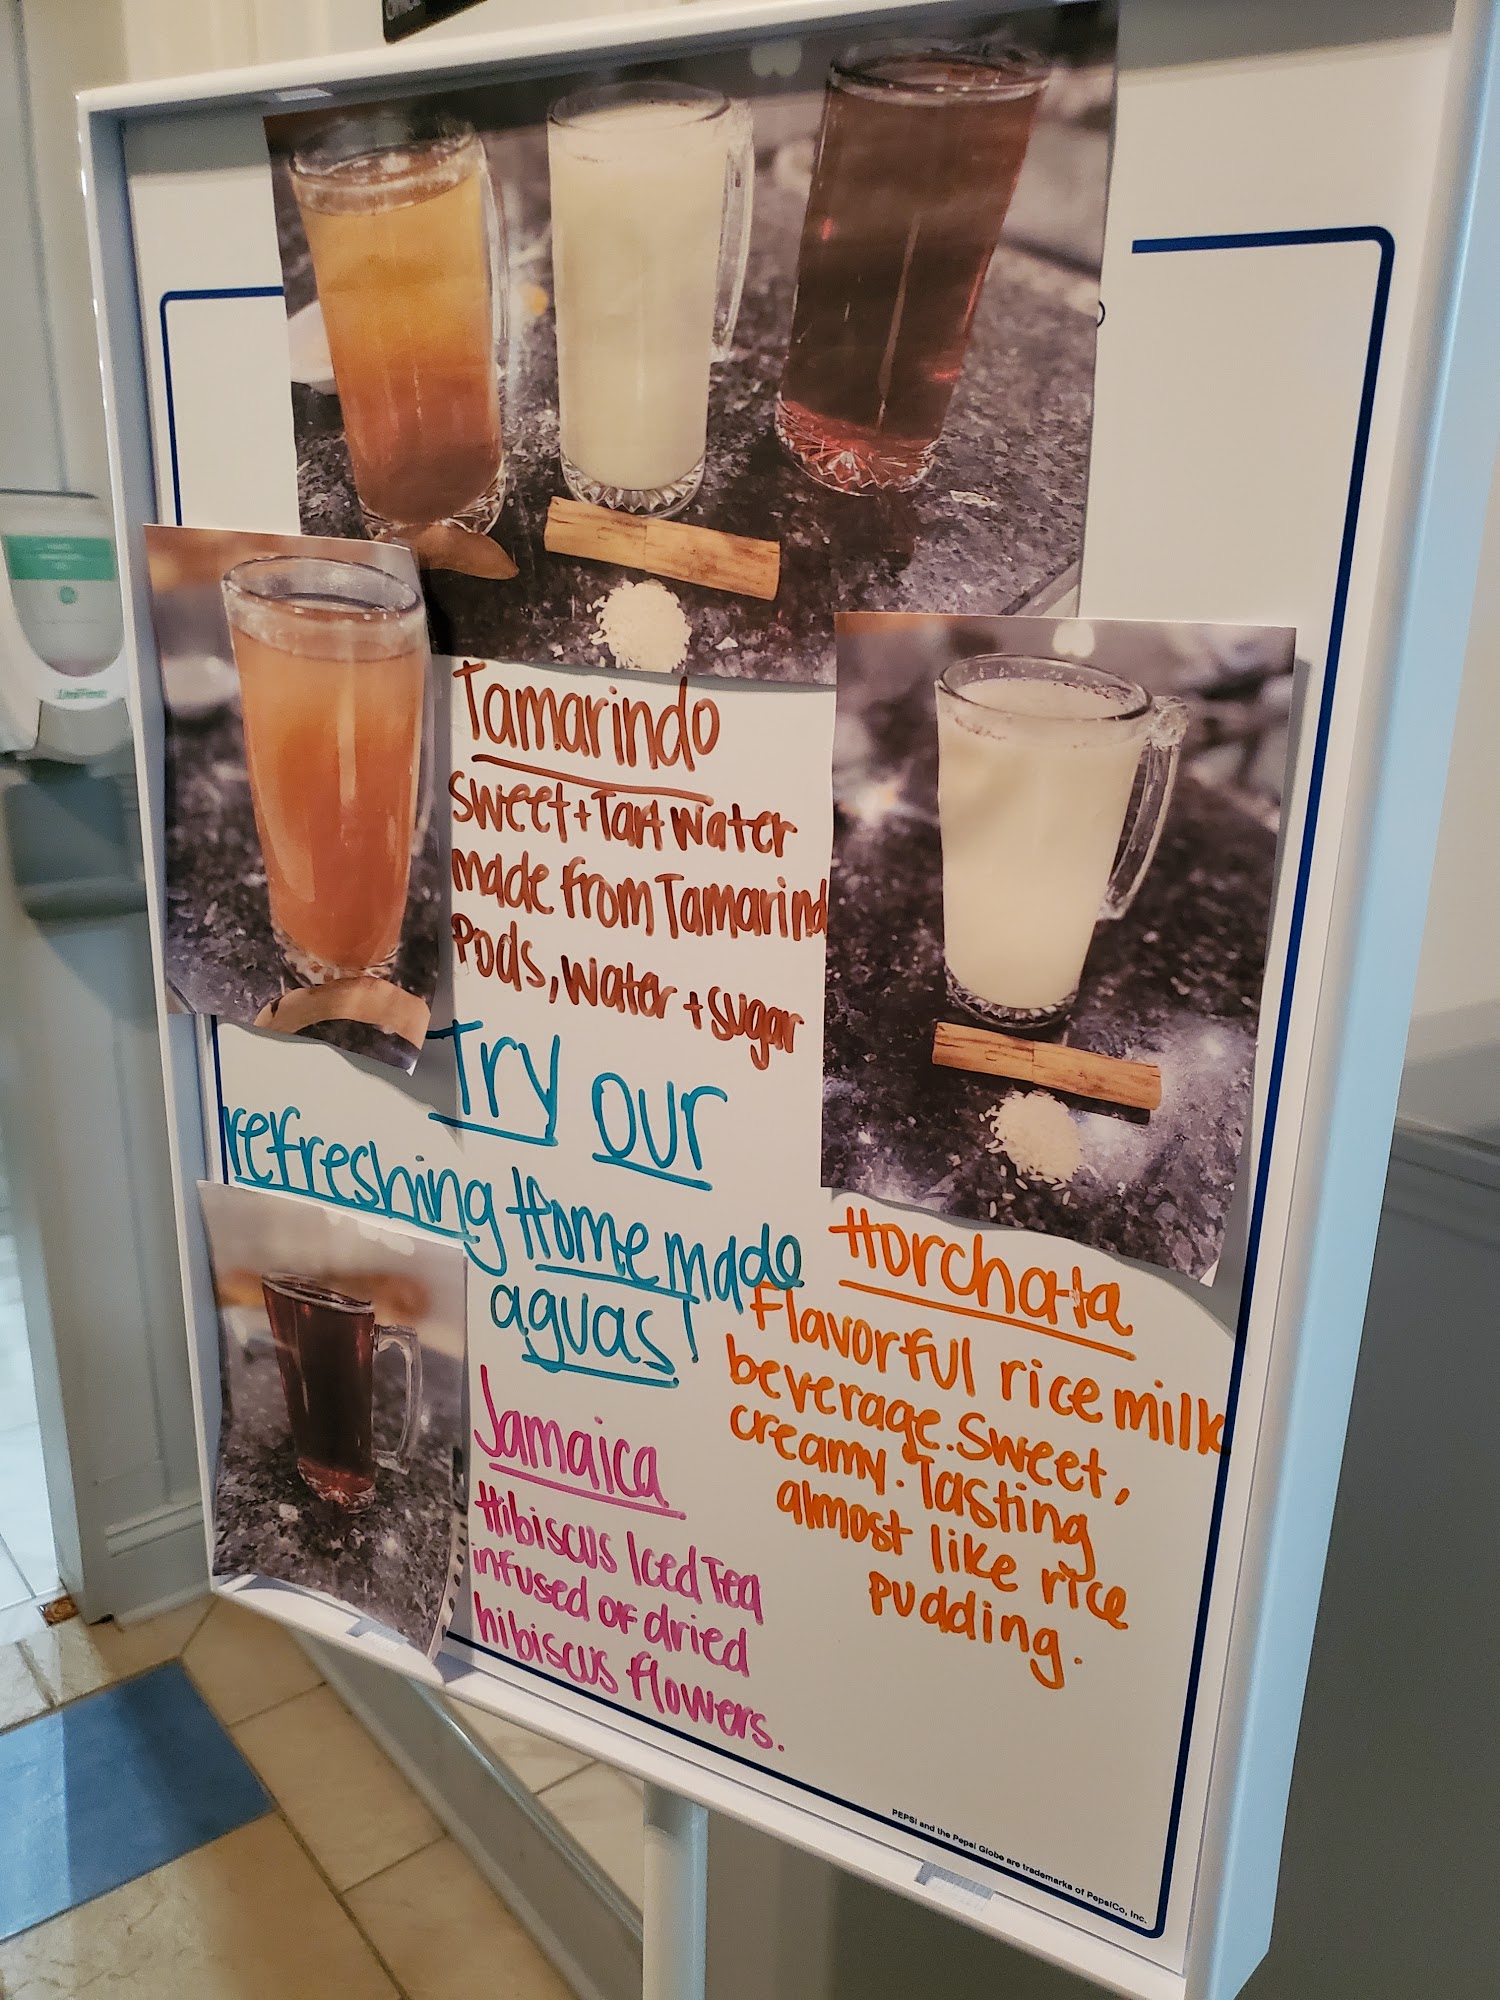 Tamarindo
Sweet + Tart water
made from Tamarind
Pods, water + sugar
Try our
refreshing Homemade
aguas!
Horchata
Flavorful rice milk
beverage. Sweet,
creamy. Tasting
almost like rice
pudding.
Jamaica
Hibiscus Iced Tea
infused of dried
hibiscus flowers.
PEPSI and the Pepsi Globe are trademarks of PepsiCo, Inc.